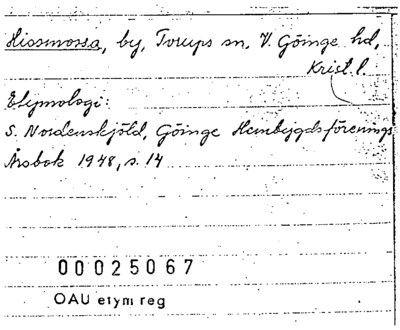 Hissmossa, by, Torups sn, V. Göinge hd,
Krist. l.
Etymologi:
S. Nordenskjöld, Göinge Hembygdsförenings
Årsbok 1948, s. 14
00025067
OAU etym reg